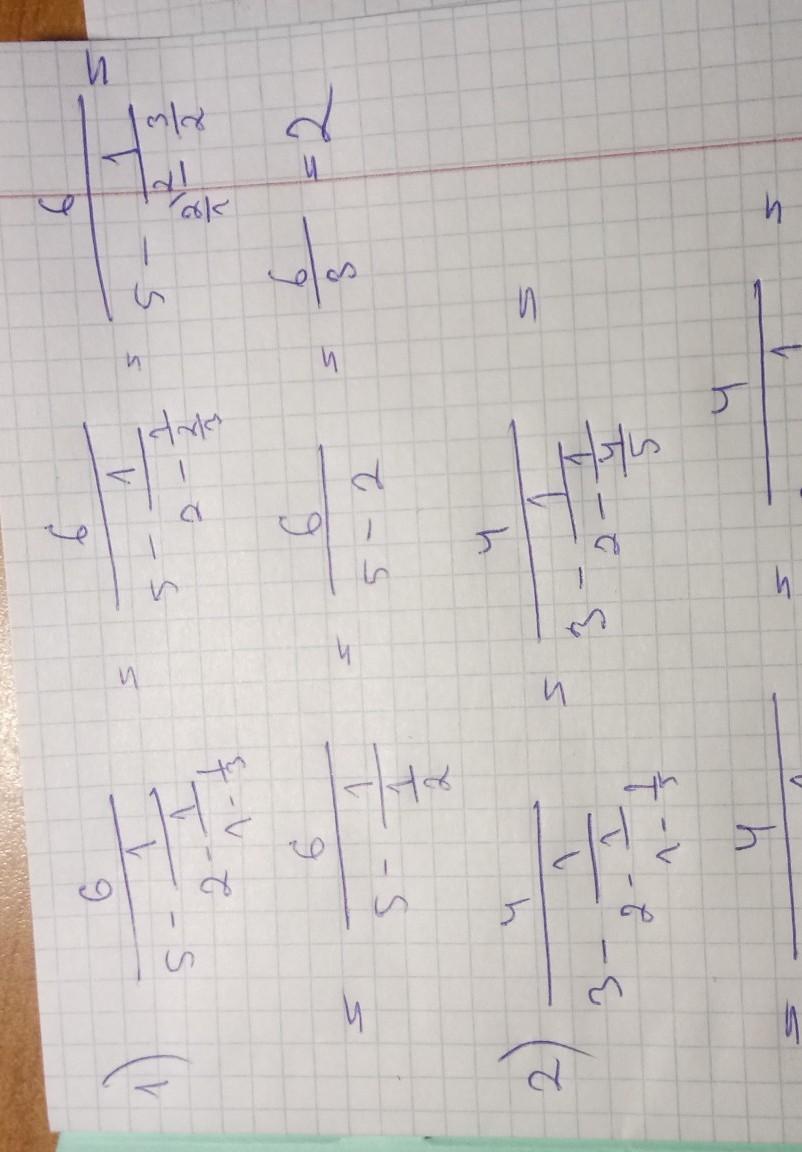 1) 6/(5 - 1/(2 - 1/(1 - 1/3))) = 6/(5 - 1/(2 - 1/(2/3))) = 6/(5 - 1/(2/1 - 3/2)) =
= 6/(5 - 1/(1/2)) = 6/(5 - 2) = 6/3 = 2
2) 4/(3 - 1/(2 - 1/(1 - 1/5))) = 4/(3 - 1/(2 - 1/(4/5))) =
= 4 = 4/1 =